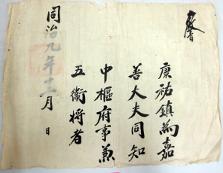 教旨
鎭爲嘉
善大夫同知
中樞府事兼
五衛將者
同治九年十二月 日